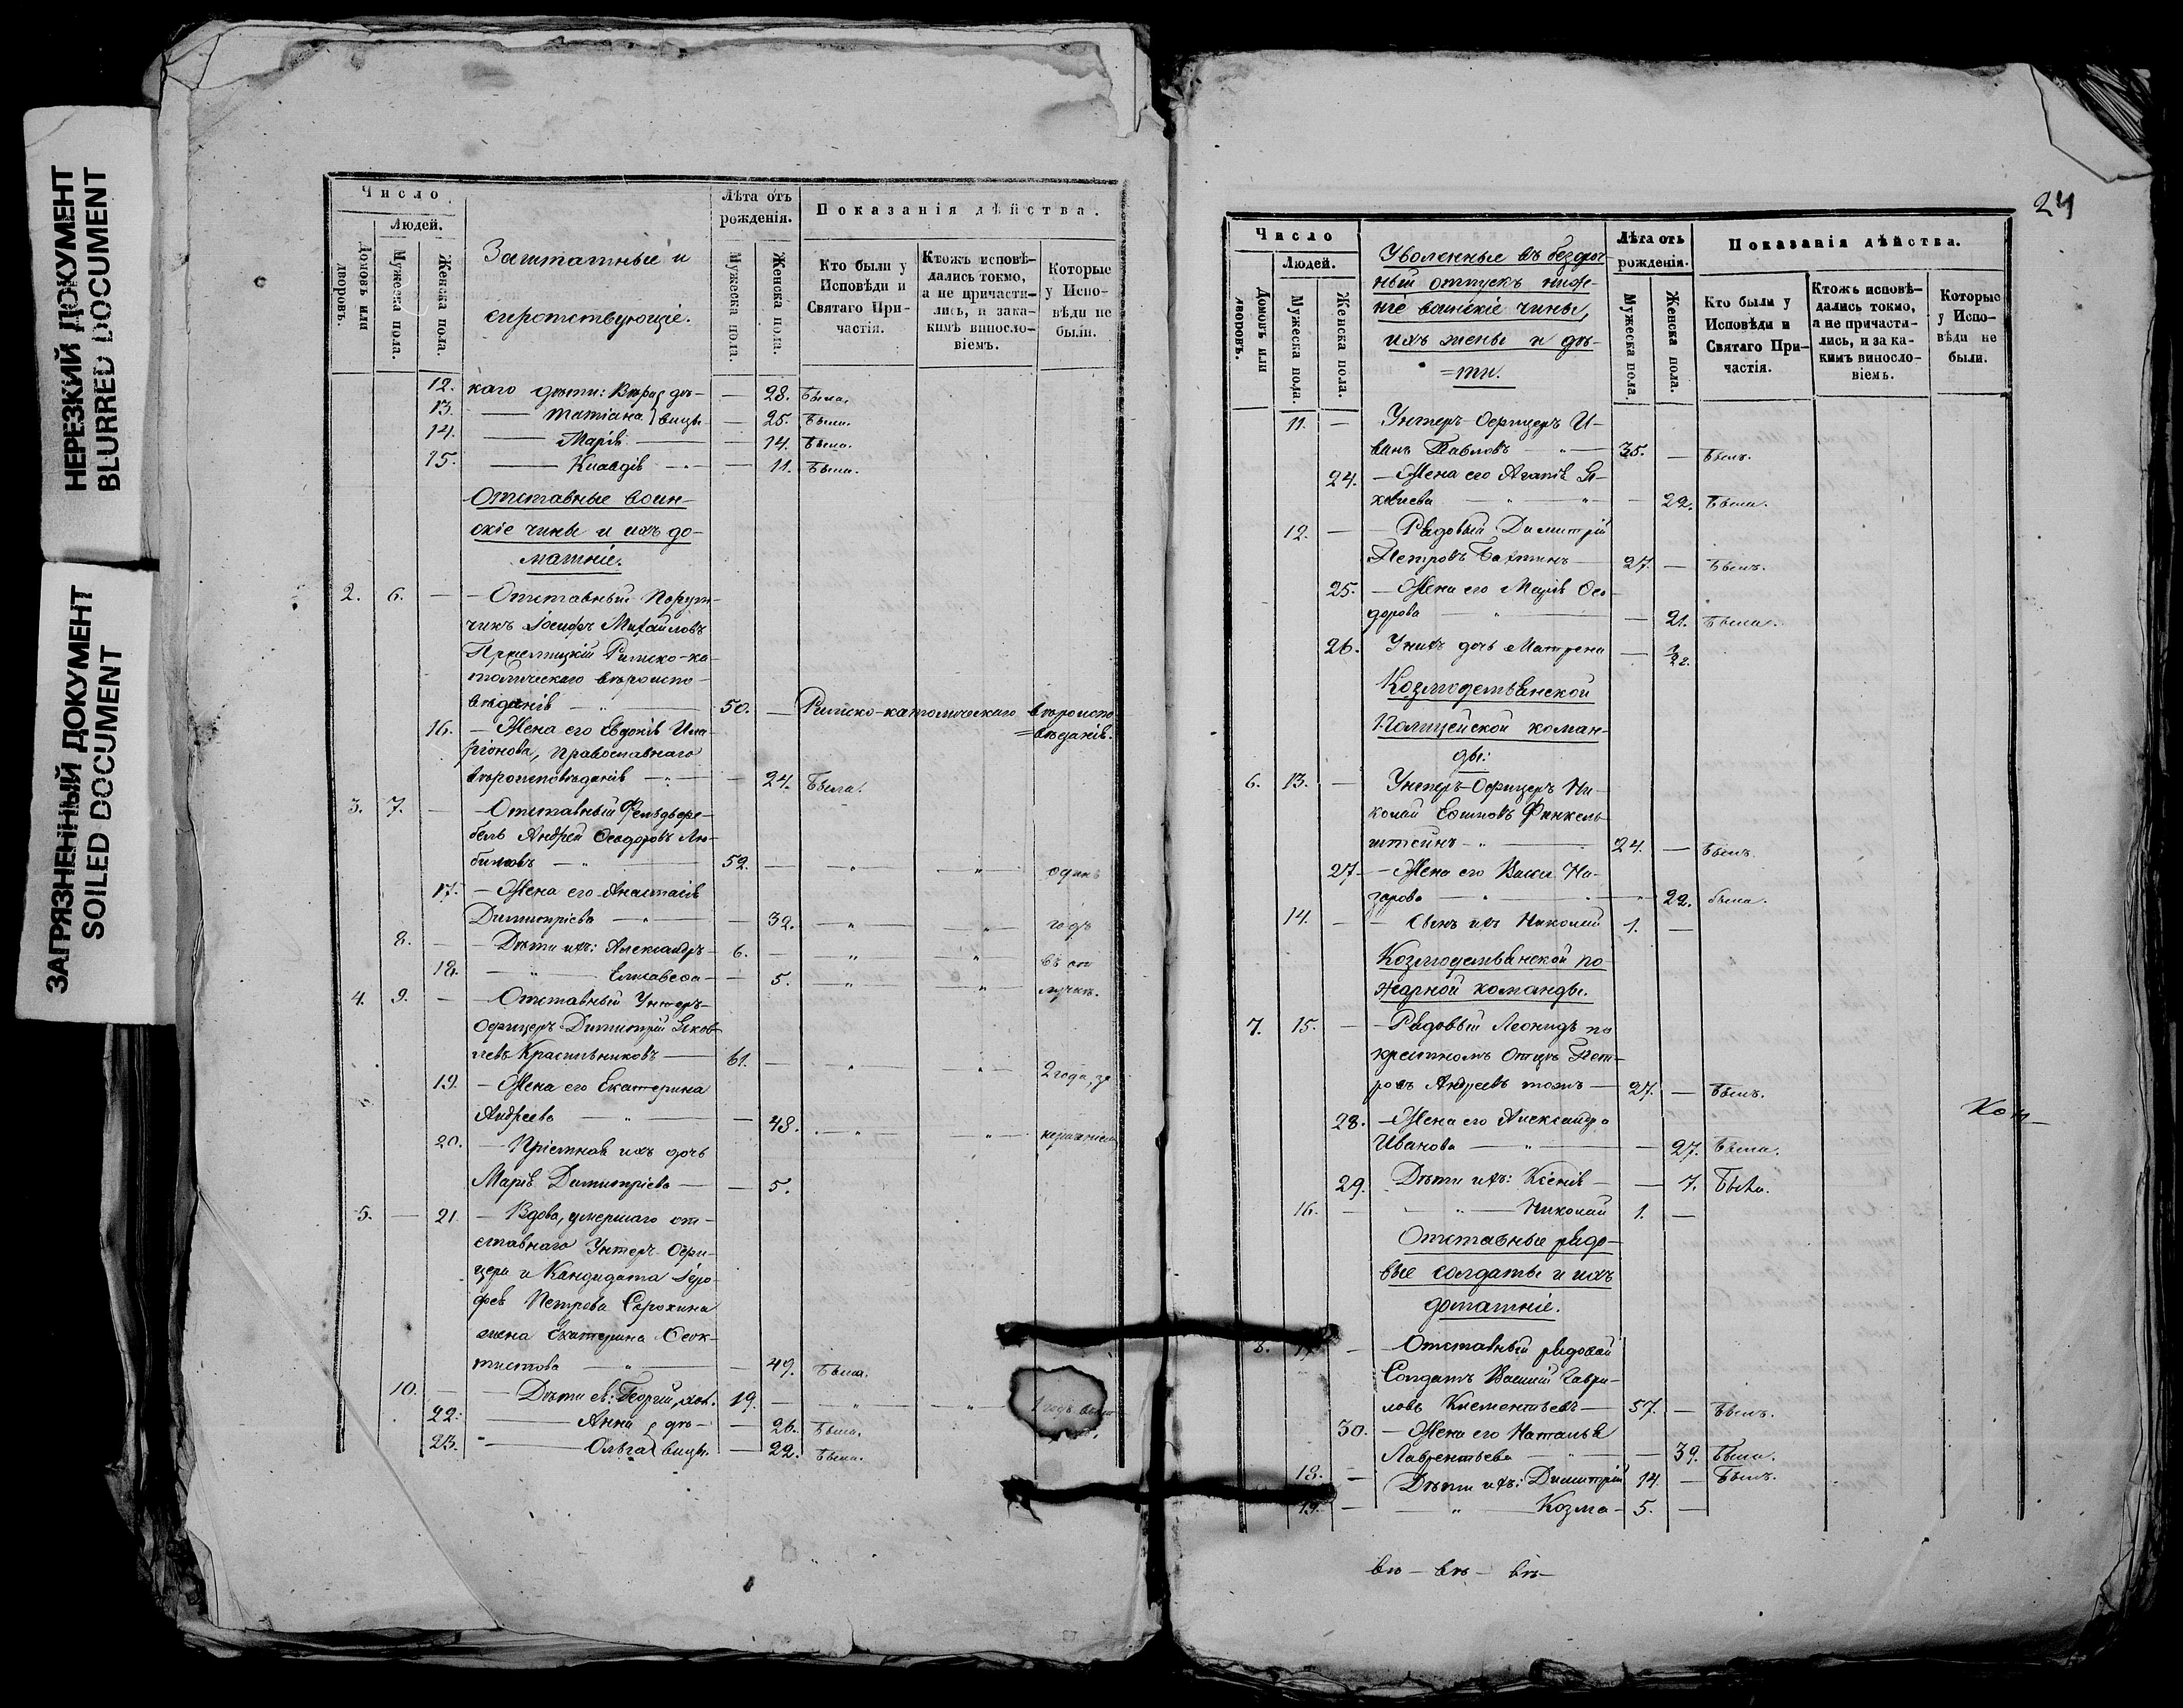 НЕРЕЗКИЙ ДОКУМЕНТ
BLURRED DOCUMENT
ЗАГРЯЗНЕННЫЙ ДОКУМЕНТ
SOILED DOCUMENT
Число
Людей.
Домовъ или дворовъ.
Мужеска пола.
Женска пола.
Заштатные и
сиротствующіе.
Лѣта отъ рожденія.
Мужеска пола.
Женска пола.
Показанія дѣйства.
Кто были у Исповѣди и Святаго Причастія.
Ктожъ исповѣдались токмо, а не причастились, и закакимъ винословіемъ.
Которые у Исповѣди не были.
12. каго дѣти: Вѣра дѣ- — 28. Была.
13. — Татіана вицы — 25. Была.
14. — Марія — 14. Была.
15. — Клавдія — 11. Была.
Отставные воин-
скіе чины и ихъ до-
машніе.
2. 6. — Отставный Порут-
чикъ Іосифъ Михайловъ
Римско-ка-
толическаго вѣроиспо-
вѣданія — 50. — Римско-католическаго вѣроиспо
=вѣданія.
16. — Жена его Евдокія Ила-
ріонова, православнаго
вѣроисповѣданія — 24. Была.
3. 7. — Отставный Фельдфе-
бель Андрей Ѳеодоровъ Лю-
бимовъ — 52. — одинъ
17. — Жена его Анастасія
Димитріева — 32. — годъ
8. — Дѣти ихъ: Александръ — 6. — въ от
18. — Елисавета — 5. — лучкѣ.
4. 9. — Отставный Унтеръ-
Офицеръ Димитрій Яков-
левъ Красильниковъ — 61. — 2 года, за
19. — Жена его Екатерина
Андреева — 48.
20. — Пріемная ихъ дочь
Марія Димитріева — 5.
5. — 21 — Вдова, умершаго от-
ставнаго Унтеръ-Офи-
цера и Кандидата Іеро-
фея Петрова Сорокина
жена Екатерина Ѳеок-
тистова — 49. Была.
10. — Дѣти ея: Георгій, хол. 19. — 1 годъ
22. — Анна дѣ- — 26. Была.
23. — Ольга вицы. — 22. Была.
24
Число
Людей.
Домовъ или дворовъ.
Мужеска пола.
Женска пола.
Уволенные въ безсроч-
ный отпускъ ниж-
ніе воинскіе чины,
ихъ жены и дѣ-
=ти.
Лѣта отъ рожденія.
Мужеска пола.
Женска пола.
Показанія дѣйства.
Кто были у Исповѣди и Святаго Причастія.
Ктожъ исповѣдались токмо, а не причастились, и за какимъ винословіемъ.
Которые у Исповѣди не были.
11. — Унтеръ-Офицеръ И-
ванъ Павловъ — 35. — Былъ.
24. — Жена его Агапія Я-
ковлева — 22. Была.
12. — Рядовый Димитрій
Петровъ Бахтинъ — 27. — Былъ.
25. — Жена его Марія Ѳео-
дорова — 21. Была.
26. У нихъ дочь Матрена —
Козмодемьянской
Полицейской коман-
ды:
6. 13. — Унтеръ-Офицеръ Ни-
колай Ефимовъ Финкель-
штейнъ — 24. — Былъ.
27. — Жена его Васса На-
зарова — 22. была.
14. — Сынъ ихъ Николай 1. —
Козмодемьянской по-
жарной команды.
7. 15. — Рядовый Леонидъ по
крестномъ Отцѣ Пет-
ровъ Андреевъ тожъ — 27. — Былъ.
28. — Жена его Александра
Иванова — 27. Была.
29. Дѣти ихъ: Ксенія — 7. Была.
16. — Николай 1. —
Отставные рядо-
вые солдаты и ихъ
домашніе.
8. 17. — Отставный рядовой
Солдатъ Василій Гаври-
ловъ Клементьевъ — 57. — Былъ.
30. — Жена его Наталья
Лаврентьева — 39. Была.
18. — Дѣти ихъ: Димитрій 14. — Былъ.
19. — Козма — 5. —